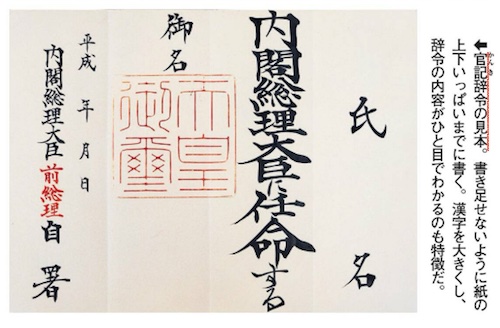 ←官記辞令の見本。書き足せないように紙の
上下いっぱいまでに書く。漢字を大きくし、
辞令の内容がひと目でわかるのも特徴だ。
かんき
氏名
内閣総理大臣に任命する
御名
天皇
御璽
平成 年 月 日
内閣総理大臣 前総理 自署